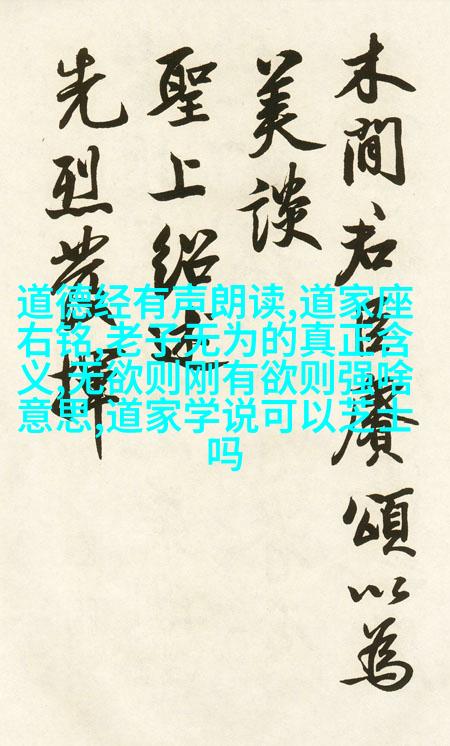 君臣賡頌以為
美談
聖上紹述
先烈
道德经有声朗读,道家座
右铭,老子无为的真正含
义,无欲则刚有欲则强啥
意思,道家学说可以芝士
吗